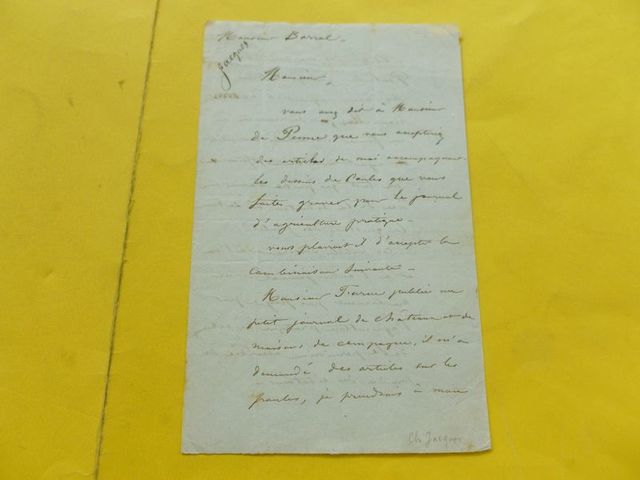 Monsieur Barral -
Jacques
Monsieur
vous avez dit à Monsieur
de Pesme que vous accepteriez
des articles de moi accompagnant
les dessins de Poules que vous
faites graver pour le journal
d'agriculture pratique -
vous plairait il d'accepter la
combinaison suivante -
Monsieur publie un
petit journal de châteaux et de
maisons de campagne, il m'a
demandé des articles sur les
poules, je prendrais à mon
Ch Jacques